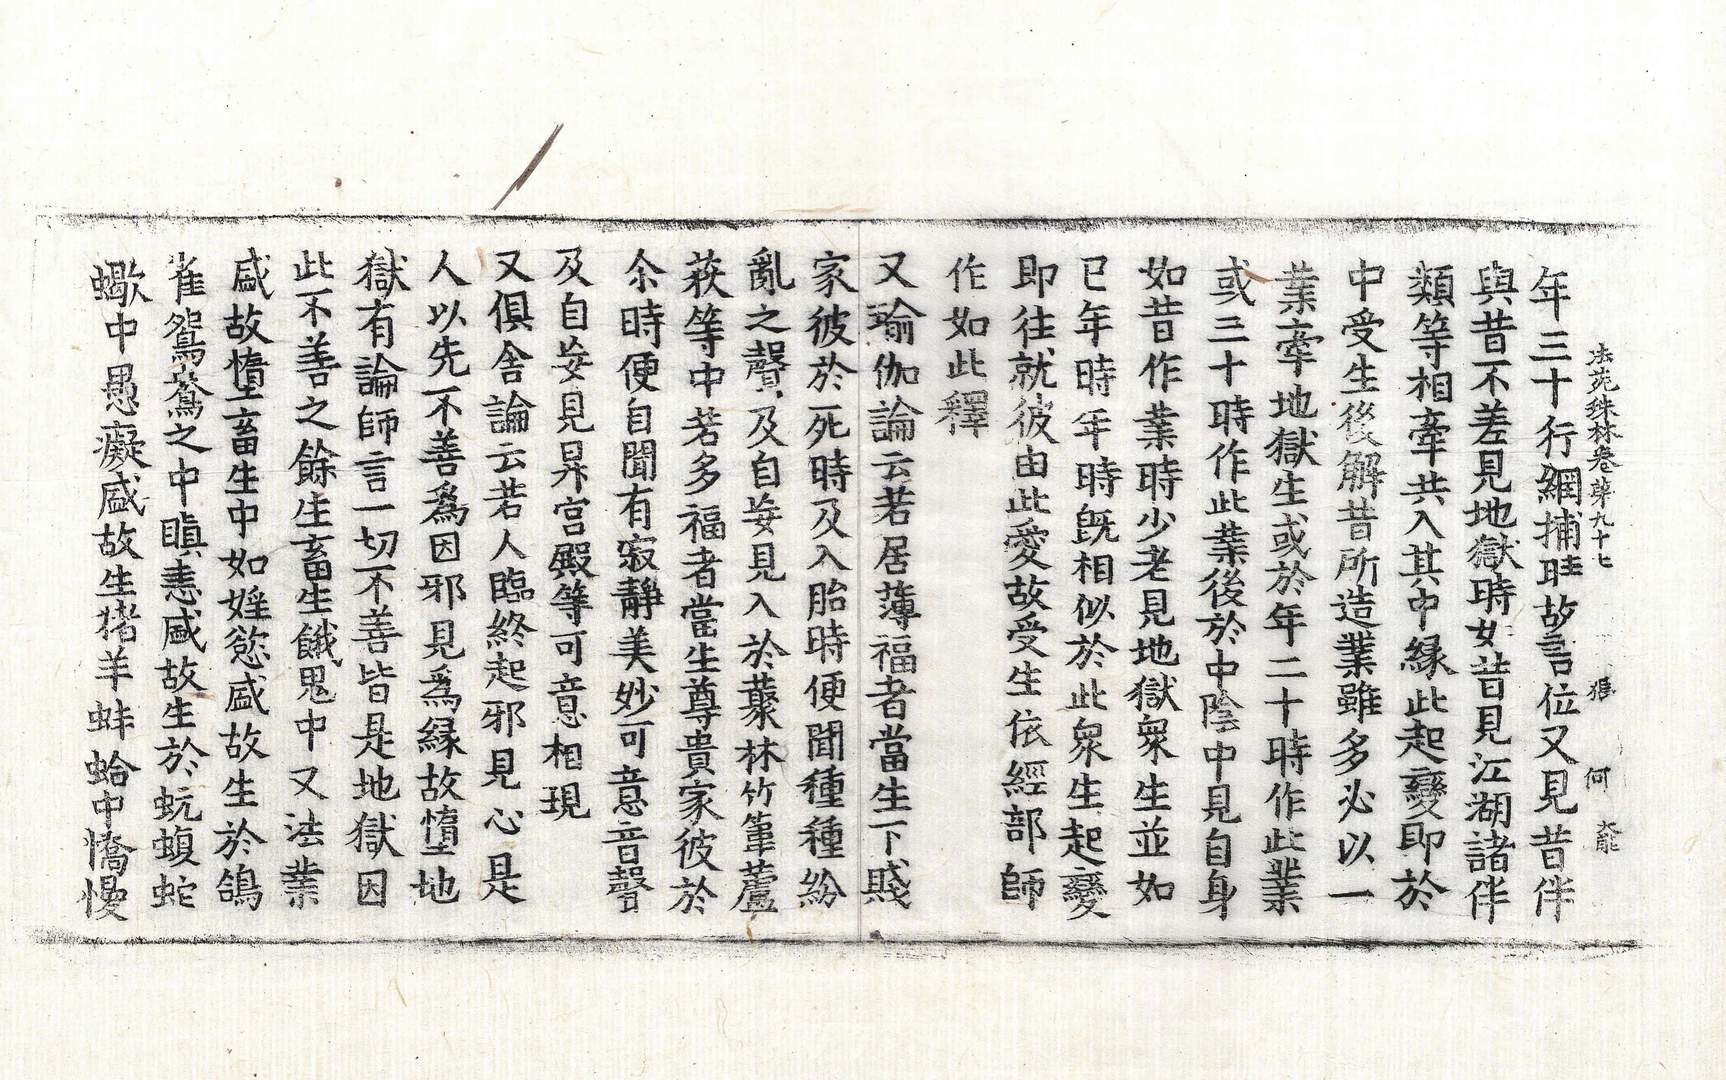 法苑珠林卷第九十七 何
年三十行網捕時故言位又見昔伴
與昔不差見地獄時如昔見江湖諸伴
類等相牽共入其中緣此起變即於
中受生後解昔所造業雖多必以一
業牽地獄生或於年二十時作此業
或三十時作此業後於中陰中見自身
如昔作業時少老見地獄衆生並如
已年時年時旣相似於此衆生起變
即往就彼由此愛故受生依經部師
作如此釋
又瑜伽論云若居薄福者當生下賤
家彼於死時及入胎時便聞種種紛
亂之聲及自妄見入於叢林竹葦蘆
荻等中若多福者當生尊貴家彼於
尒時便自聞有寂靜美妙可意音聲
及自妄見昇宮殿等可意相現
又俱舍論云若人臨終起邪見心是
人以先不善爲因邪見爲緣故墮地
獄有論師言一切不善皆是地獄因
此不善之餘生畜生餓鬼中又法業
盛故墮畜生中如婬慾盛故生於鴿
雀鴛鴦之中瞋恚盛故生於蚖蝮蛇
蠍中愚癡盛故生猪羊蚌蛤中憍慢